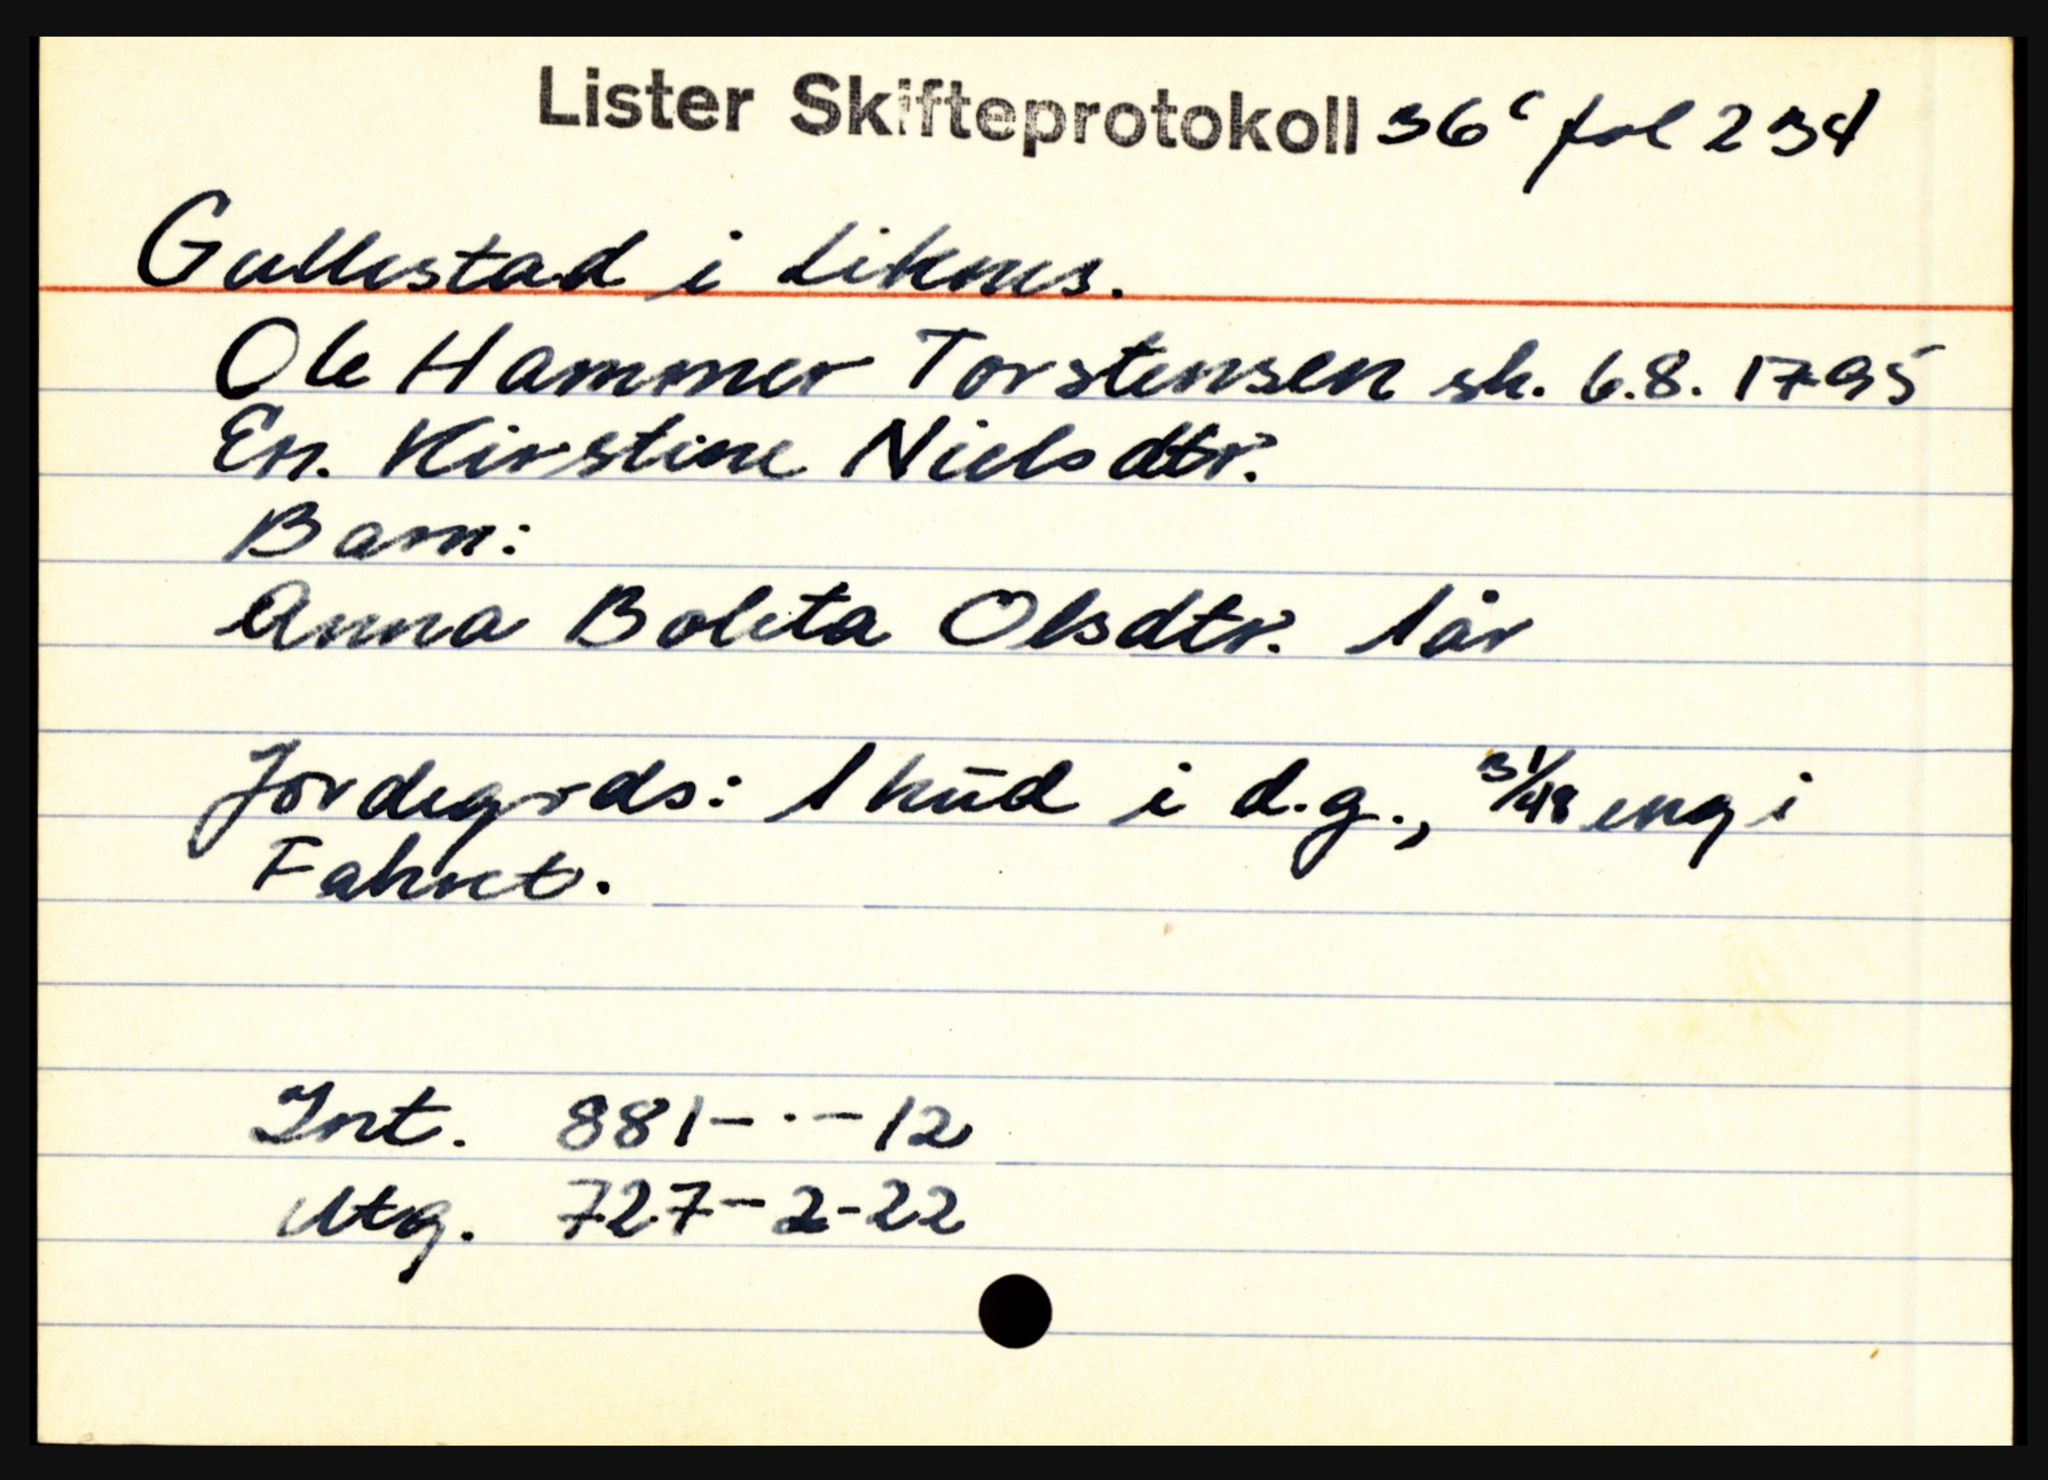 Lister Skifteprotokoll 36c fol 234
Gullestad i Liknes.
Ole Hammer Torstensen sk. 6.8. 1795
En. Kirstine Nielsdtr.
Barn:
Anna Boleta Olsdtr. 1 år
Jordegrds: 1 hud i d.g., 31/48 eng i
Fahret.
Int. 881-·-12
Utg. 727-2-22